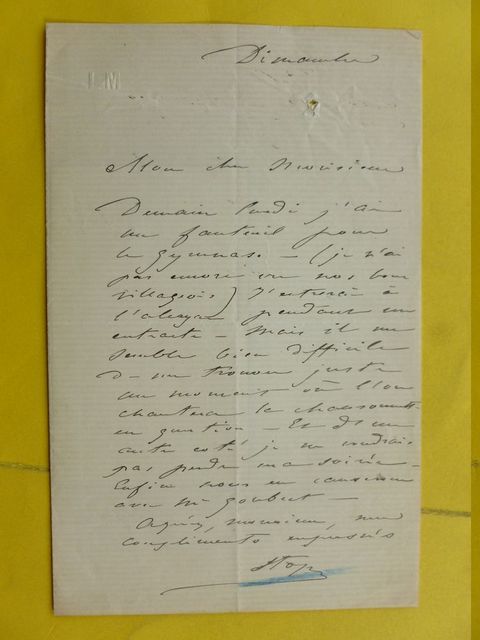 Dimanche
Mon cher Monsieur
Demain lundi j'ai
un fauteuil pour
le gymnase. — (je n'ai
pas encore vu nos bons
villageois) J'entrerai à
l'alcazar pendant un
entracte — Mais il me
semble bien difficile
de me trouver juste
au moment où l'on
chantera la chansonnette
en question — Et d'un
autre coté je ne voudrais
pas perdre ma soirée —
Enfin nous en causerons
avec Mr Goubert —
Agréez, monsieur, mes
compliments empressés
Stop